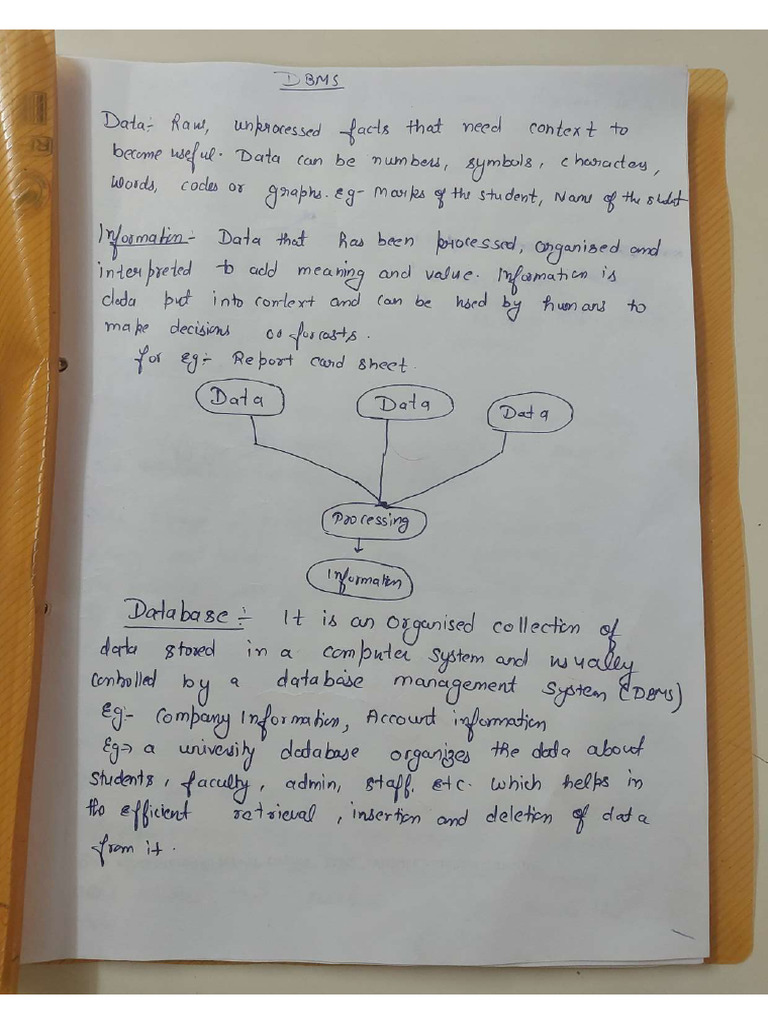 DBMS
Data:- Raw, unprocessed facts that need context to
become useful. Data can be numbers, symbols, characters,
words, codes or graphs. eg- Marks of the student, Name of the
Information:- Data that has been processed, organised and
interpreted to add meaning and value. Information is
data put into context and can be used by humans to
make decisions or forcasts.
for eg:- Report card sheet.
Data Data Data
Processing
Information
Database:- It is an organised collection of
data stored in a computer system and usually
controlled by a database management system (DBMS)
Eg:- Company Information, Account information
Eg→ a university database organizes the data about
students, faculty, admin, staff, etc. which helps in
the efficient retrieval, insertion and deletion of data
from it.